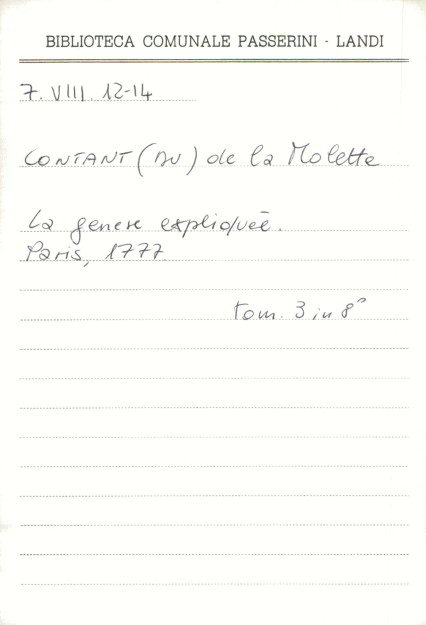 BIBLIOTECA COMUNALE PASSERINI - LANDI
7. VIII. 12-14
CONTANT (DU) de la Molette
La genese expliquée.
Paris, 1777
tom. 3 in 8°